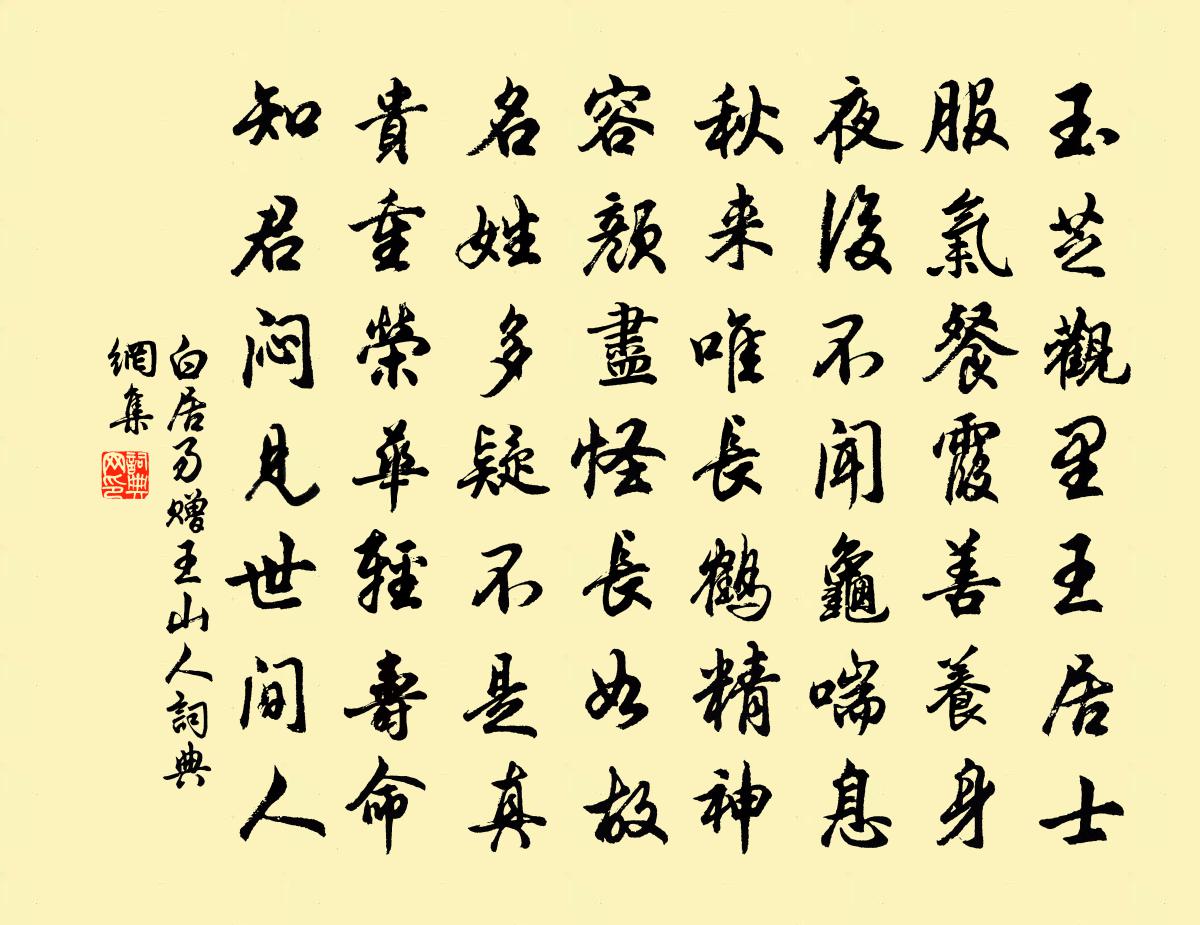 玉芝觀里王居士
服氣餐霞善養身
夜後不聞龜喘息
秋来唯長鶴精神
容顏盡怪長如故
名姓多疑不是真
貴重榮華輕壽命
知君闷見世间人
白居易赠王山人詞典
網集
詞典网印